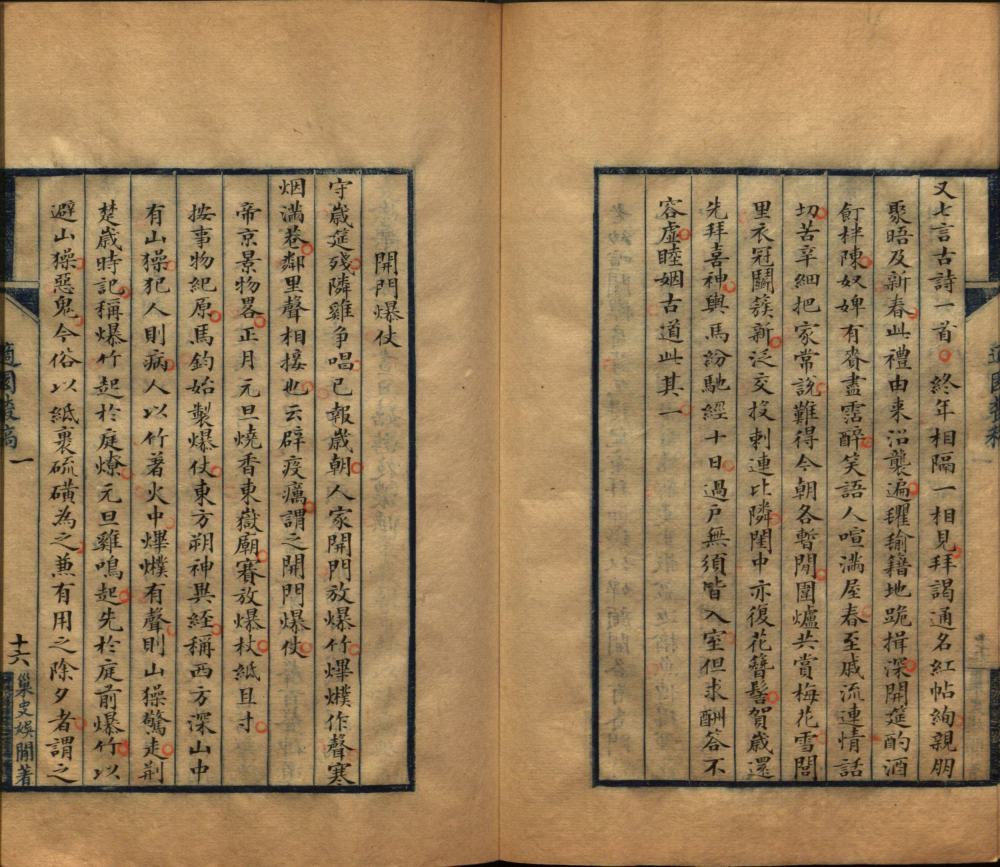 又七言古詩一首終年相隔一相見拜謁通名紅帖絢親朋
聚晤及新春此禮由来沿襲遍氍毹籍地跪揖深開筵酌酒
飣柈陳奴婢有賚盡霑醉笑語人喧滿屋春至戚流連情話
切苦辛細把家常說難得今朝各暫閒圍爐共賞梅花雪閭
里衣冠鬭簇新泛交投刺連比隣閨中亦復花簪髻賀歲還
先拜喜神輿馬紛馳經十日過户無須皆入室但求酬答不
容虛睦姻古道此其一
開門爆仗
守歲筵殘隣雞争唱已報歲朝人家開門放爆竹㷸爆作聲寒
烟滿巷鄰里聲相接也云辟疫癘謂之開門爆仗
帝京景物畧正月元旦燒香東嶽廟賽放爆杖紙且寸
按事物紀原馬鈞始製爆仗東方朔神異經稱西方深山中
有山猱犯人則病人以竹著火中㷸爆有聲則山猱驚走荆
楚歲時記稱爆竹起於庭燎元旦雞鳴起先於庭前爆竹以
避山猱惡鬼今俗以紙裹硫磺為之兼有用之除夕者謂之
一
十六
巢史娛閒著